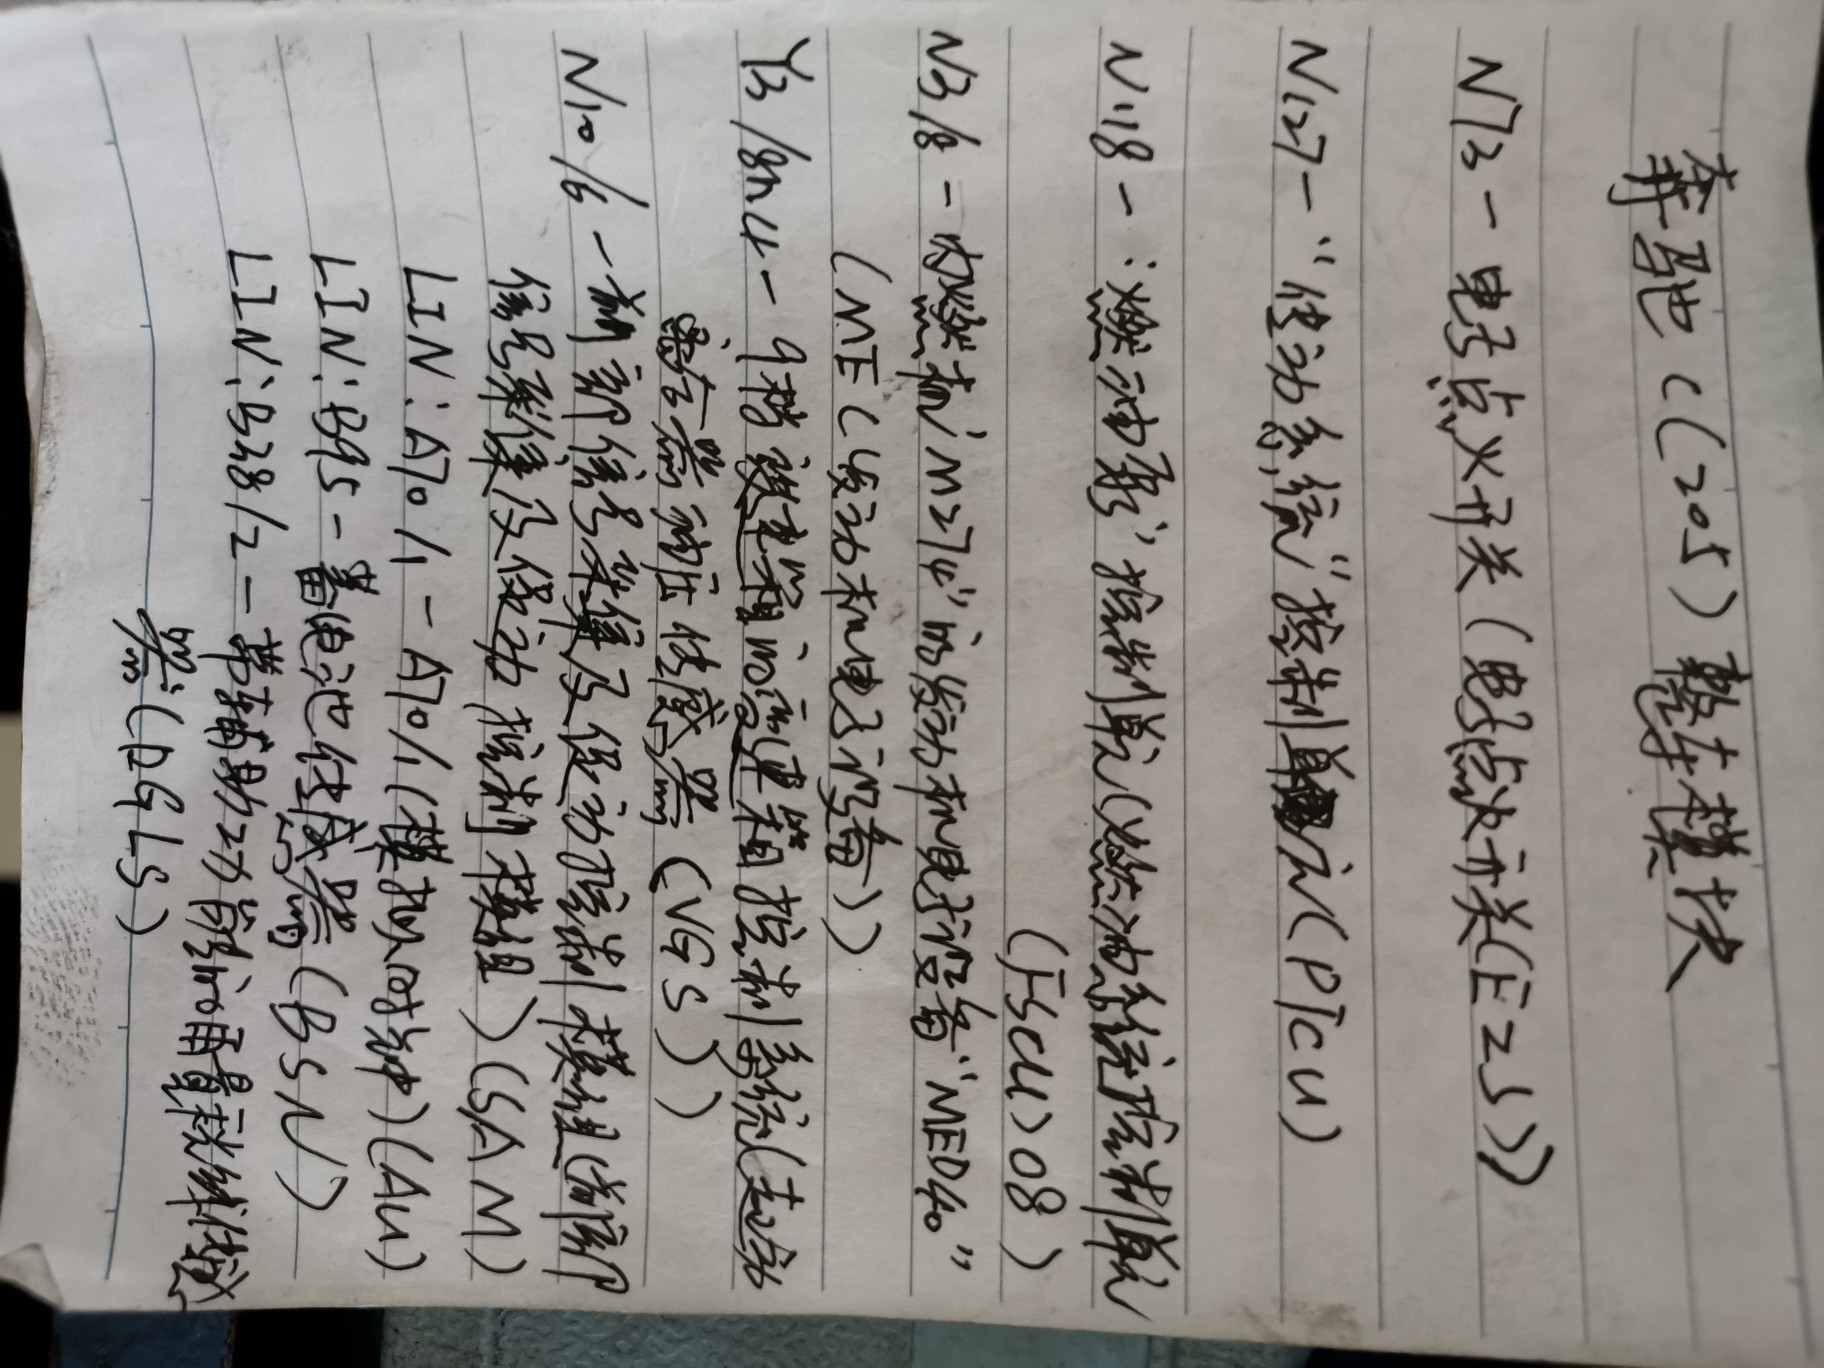 奔驰((205)整车模块
N73-电子点火开关(电子点火开关(EZS))
N127-“传动系统”控制单元(PTCU)
N118-:燃油泵”控制单元(燃油系统控制单元
(FSCU)08)
N3/8-内燃机'M274"的发动机电子设备“MED40”
(ME(发动机电子设备))
Y3/8n4-9档变速箱的变速箱控制系统(主动
变速箱油压传感器(VGS))
N10/6-前部信号采集及促动控制模组(前部
信号采集及促动控制模组)(SAM)
LIN:A70/1-A70/1(模拟时钟)(AU)
LIN:B95-蓄电池传感器(BSN)
LIN:B38/2-带辅助功能的雨量/光线传感
器(DGLS)